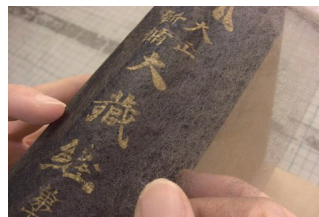 大正
新脩
大藏經